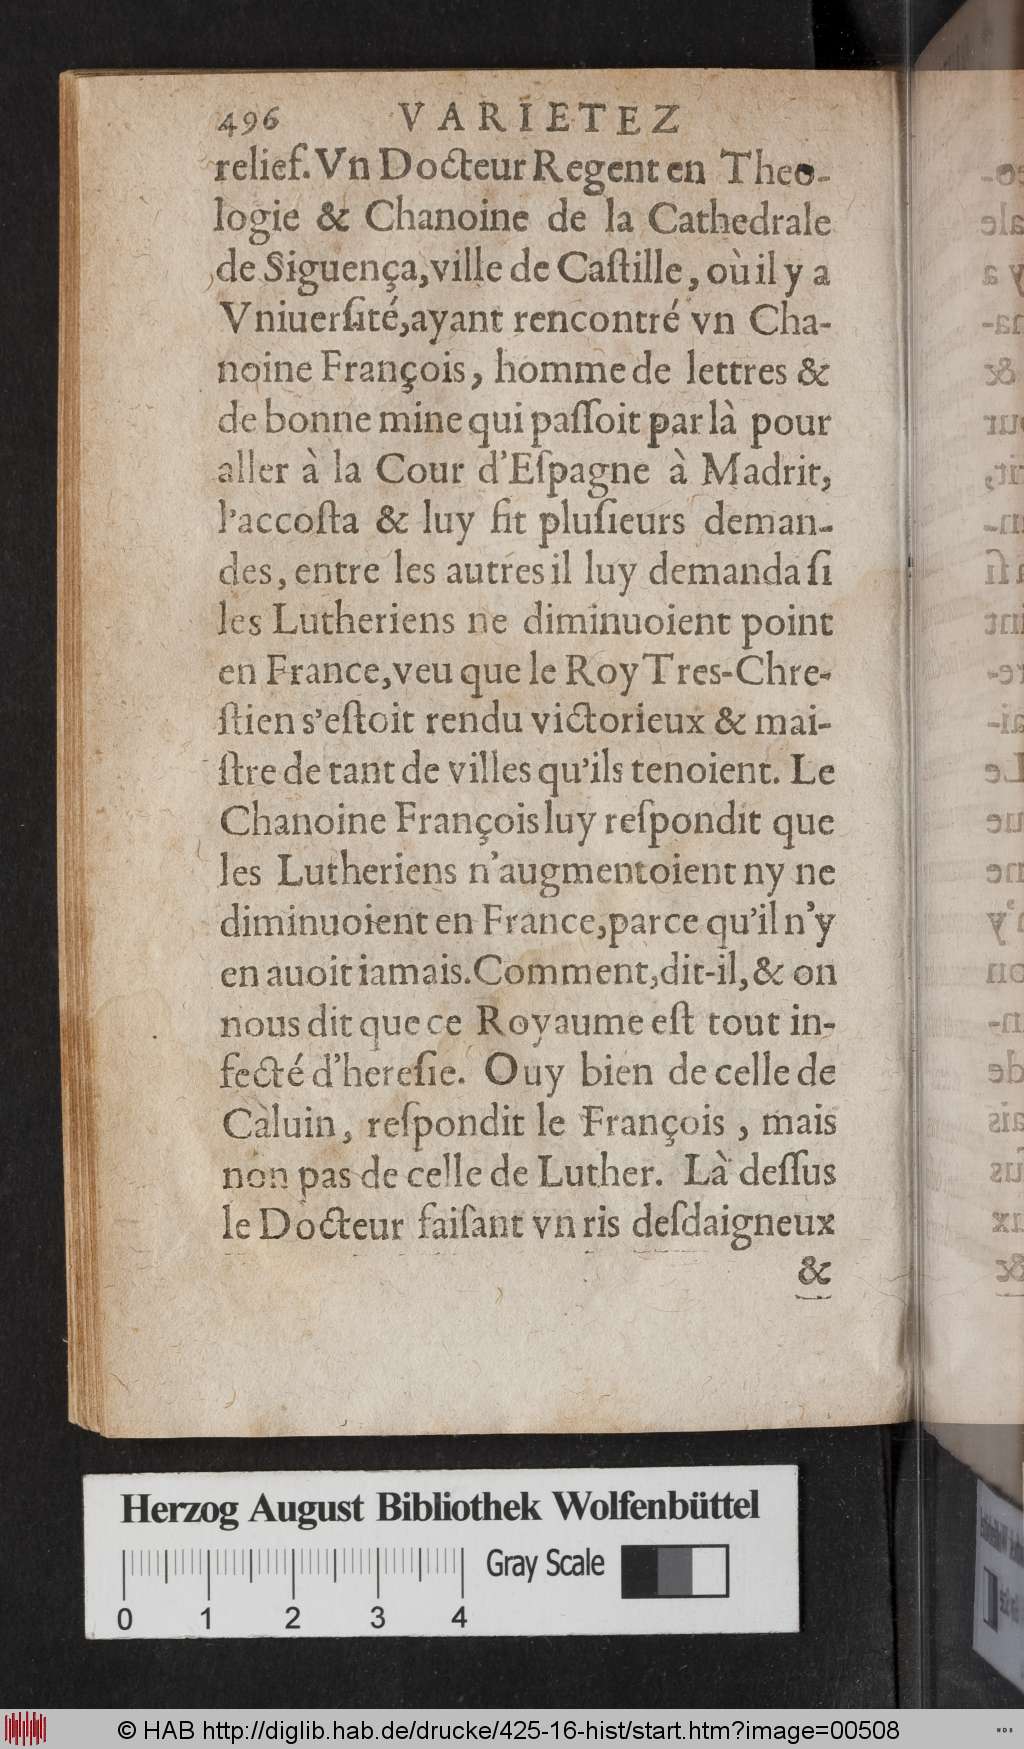 496 VARIETEZ
relief. Vn Docteur Regent en Theo-
logie & Chanoine de la Cathedrale
de Siguença, ville de Caſtille, où il y a
Vniuerſité, ayant rencontré vn Cha-
noine François, homme de lettres &
de bonne mine qui paſſoit par là pour
aller à la Cour d'Eſpagne à Madrit,
l'accoſta & luy fit pluſieurs deman-
des, entre les autres il luy demanda ſi
les Lutheriens ne diminuoient point
en France, veu que le Roy Tres-Chre-
ſtien s'eſtoit rendu victorieux & mai-
ſtre de tant de villes qu'ils tenoient. Le
Chanoine François luy reſpondit que
les Lutheriens n'augmentoient ny ne
diminuoient en France, parce qu'il n'y
en auoit iamais. Comment, dit-il, & on
nous dit que ce Royaume eſt tout in-
fecté d'hereſie. Ouy bien de celle de
Caluin, reſpondit le François, mais
non pas de celle de Luther. Là deſſus
le Docteur faiſant vn ris deſdaigneux
&
Herzog August Bibliothek Wolfenbüttel
Gray Scale
0 1 2 3 4
© HAB http://diglib.hab.de/drucke/425-16-hist/start.htm?image=00508